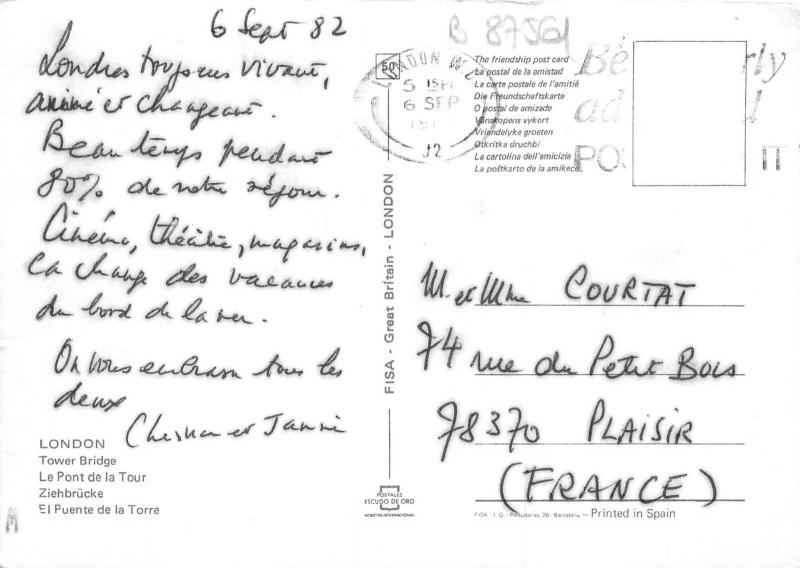 6 Sept 82
Londres toujours vivant,
animé et changeant.
Beau temps pendant
80% de notre séjour.
Cinéma, théâtre, magasins,
ça change des vacances
du bord de la mer.
On vous embrasse tous les
deux
et
LONDON
Tower Bridge
Le Pont de la Tour
Ziehbrücke
El Puente de la Torre
B 87561
50
LONDON
5 15PM
6 SEP
J2
The friendship post card
La postal de la amistad
La carte postale de l'amitié
Die Freundschaftskarte
O postal de amizade
Vänskapens vykort
Vriendelyke groeten
Otkritka druchbi
La cartolina dell'amicizia
La poštkarto de la amikeco
FISA - Great Britain - LONDON
M. et Mme COURTAT
74 rue du Petit Bois
78370 PLAISIR
(FRANCE)
POSTALES
ESCUDO DE ORO
FISA - I. G. - Palaudarias, 26 - Barcelona - Printed in Spain